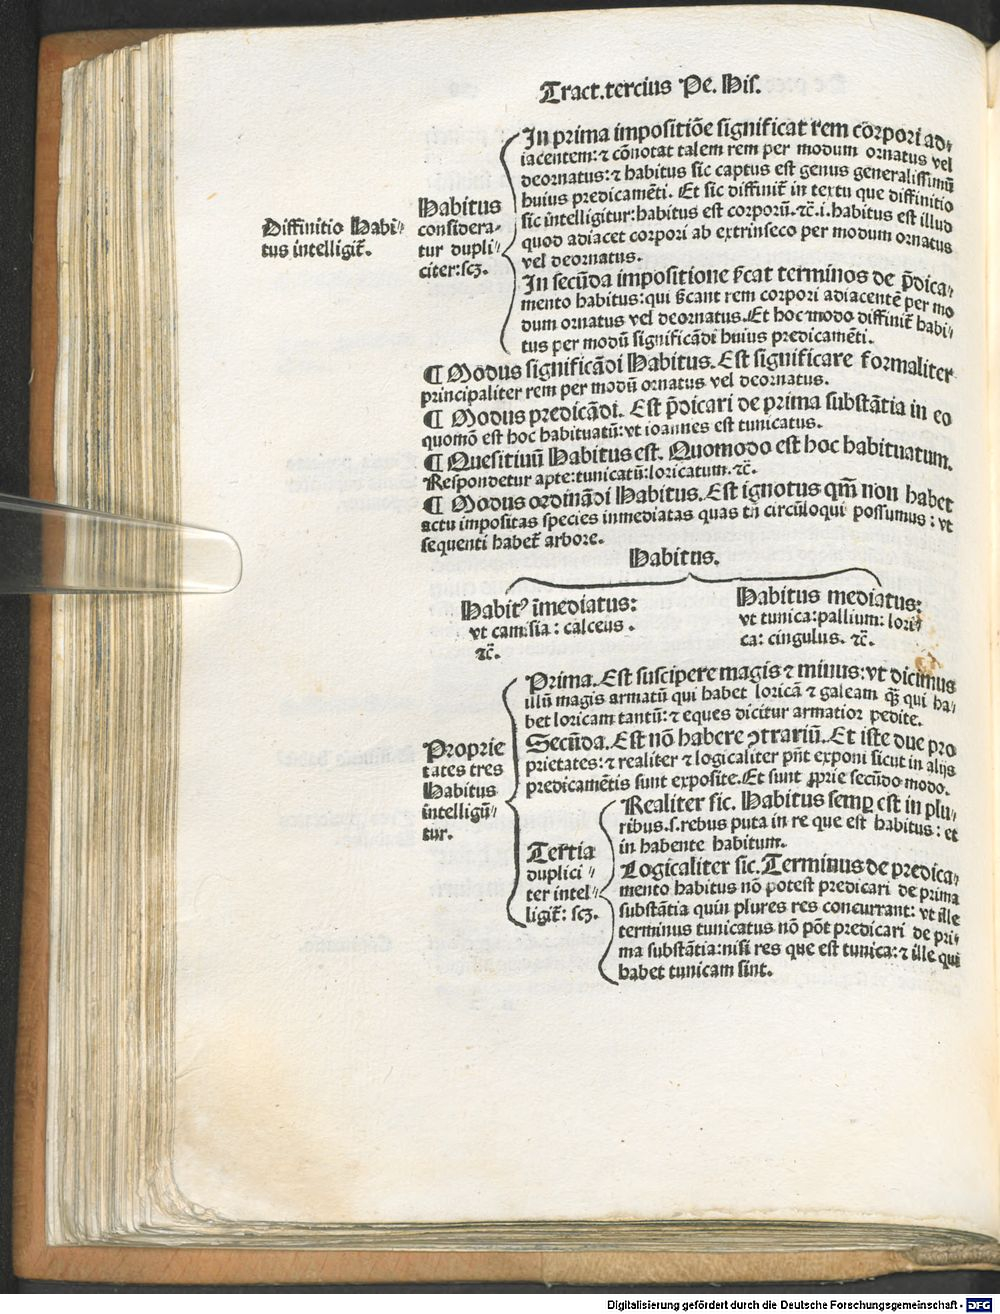 Tract.tercius Pe. His.
Diffinitio Habi-
tus intelligit̃.
Habitus
considera-
tur dupli-
citer:scꝫ.
In prima impositiõe significat rem corpori ad-
iacentem:⁊ cõnotat talem rem per modum ornatus vel
deornatus:⁊ habitus sic captus est genus generalissimũ
huius predicamẽti. Et sic diffinit̃ in textu que diffinitio
sic intelligitur:habitus est corporũ.⁊c̃.i.habitus est illud
quod adiacet corpori ab extrinseco per modum ornatus
vel deornatus.
In secũda impositione s̃cat terminos de p̃dica-
mento habitus:qui s̃cant rem corpori adiacentẽ per mo
dum ornatus vel deornatus.Et hoc modo diffinit̃ habi-
tus per modũ significãdi huius predicamẽti.
¶ Modus significãdi Habitus. Est significare formaliter
principaliter rem per modũ ornatus vel deornatus.
¶ Modus predicãdi. Est p̃dicari de prima substãtia in eo
quomõ est hoc habituatũ:vt ioannes est tunicatus.
¶ Quesitiuũ Habitus est. Quomodo est hoc habituatum.
Respondetur apte:tunicatũ:loricatum.⁊c̃.
¶ Modus ordinãdi Habitus. Est ignotus qm̃ non habet
actu impositas species inmediatas quas tñ circũloqui possumus : vt
sequenti habet̃ arbore.
Habitus.
Habitꝰ ĩmediatus:
vt camisia : calceus .
⁊c̃.
Habitus mediatus:
vt tunica:pallium: lori-
ca: cingulus. ⁊c̃.
Proprie
tates tres
Habitus
intelligũ-
tur.
Prima. Est suscipere magis ⁊ minus:vt dicimus
illũ magis armatũ qui habet loricã ⁊ galeam q̃ꝫ qui ha-
bet loricam tantũ:⁊ eques dicitur armatior pedite.
Secũda. Est nõ habere ꝯtrariũ. Et iste due pro
prietates:⁊ realiter ⁊ logicaliter pñt exponi sicut in alijs
predicamẽtis sunt exposite.Et sunt ꝓprie secũdo modo.
Tertia
duplici-
ter intel-
ligit̃: scꝫ.
Realiter sic. Habitus semꝑ est in plu-
ribus.s.rebus puta in re que est habitus: et
in habente habitum.
Logicaliter sic.Terminus de predica-
mento habitus nõ potest predicari de prima
substãtia quin plures res concurrant: vt ille
terminus tunicatus nõ põt predicari de pri-
ma substãtia:nisi res que est tunica:⁊ ille qui
habet tunicam sint.
Digitalisierung gefördert durch die Deutsche Forschungsgemeinschaft - DFG